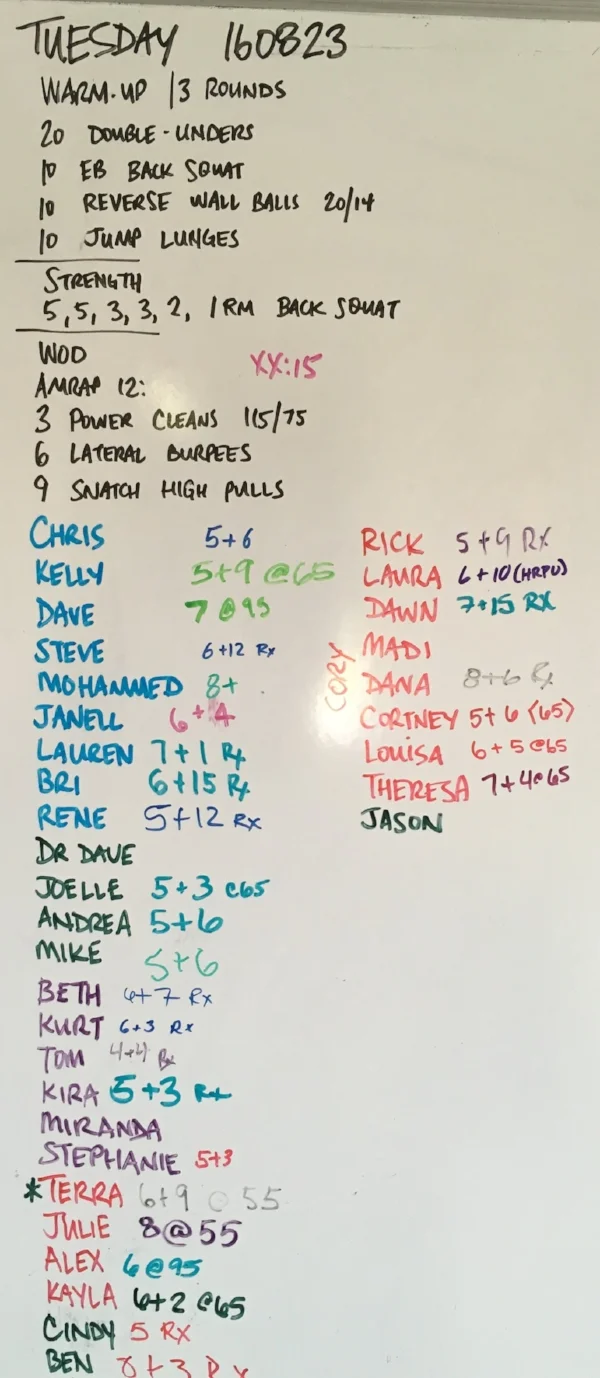 TUESDAY 160823
WARM-UP / 3 ROUNDS
20 DOUBLE-UNDERS
10 EB BACK SQUAT
10 REVERSE WALL BALLS 20/14
10 JUMP LUNGES
STRENGTH
5, 5, 3, 3, 2, 1 RM BACK SQUAT
WOD
XX:15
AMRAP 12:
3 POWER CLEANS 115/75
6 LATERAL BURPEES
9 SNATCH HIGH PULLS
CHRIS 5+6
KELLY 5+9 @65
DAVE 7 @ 95
STEVE 6+12 Rx
MOHAMMED 8+
JANELL 6+4
LAUREN 7+1 Rx
BRI 6+15 Rx
RENE 5+12 Rx
DR DAVE
JOELLE 5+3 @65
ANDREA 5+6
MIKE 5+6
BETH 6+7 Rx
KURT 6+3 Rx
TOM 4+4 Rx
KIRA 5+3 Rx
MIRANDA
STEPHANIE 5+3
*TERRA 6+9 @ 55
JULIE 8@55
ALEX 6@95
KAYLA 6+2 @65
CINDY 5 RX
BEN 8+3 Rx
RICK 5+9 RX
LAURA 6+10 (HRPU)
DAWN 7+15 RX
MADI
CORY
DANA 8+6 Rx
CORTNEY 5+6 (65)
LOUISA 6+5@65
THERESA 7+4@65
JASON